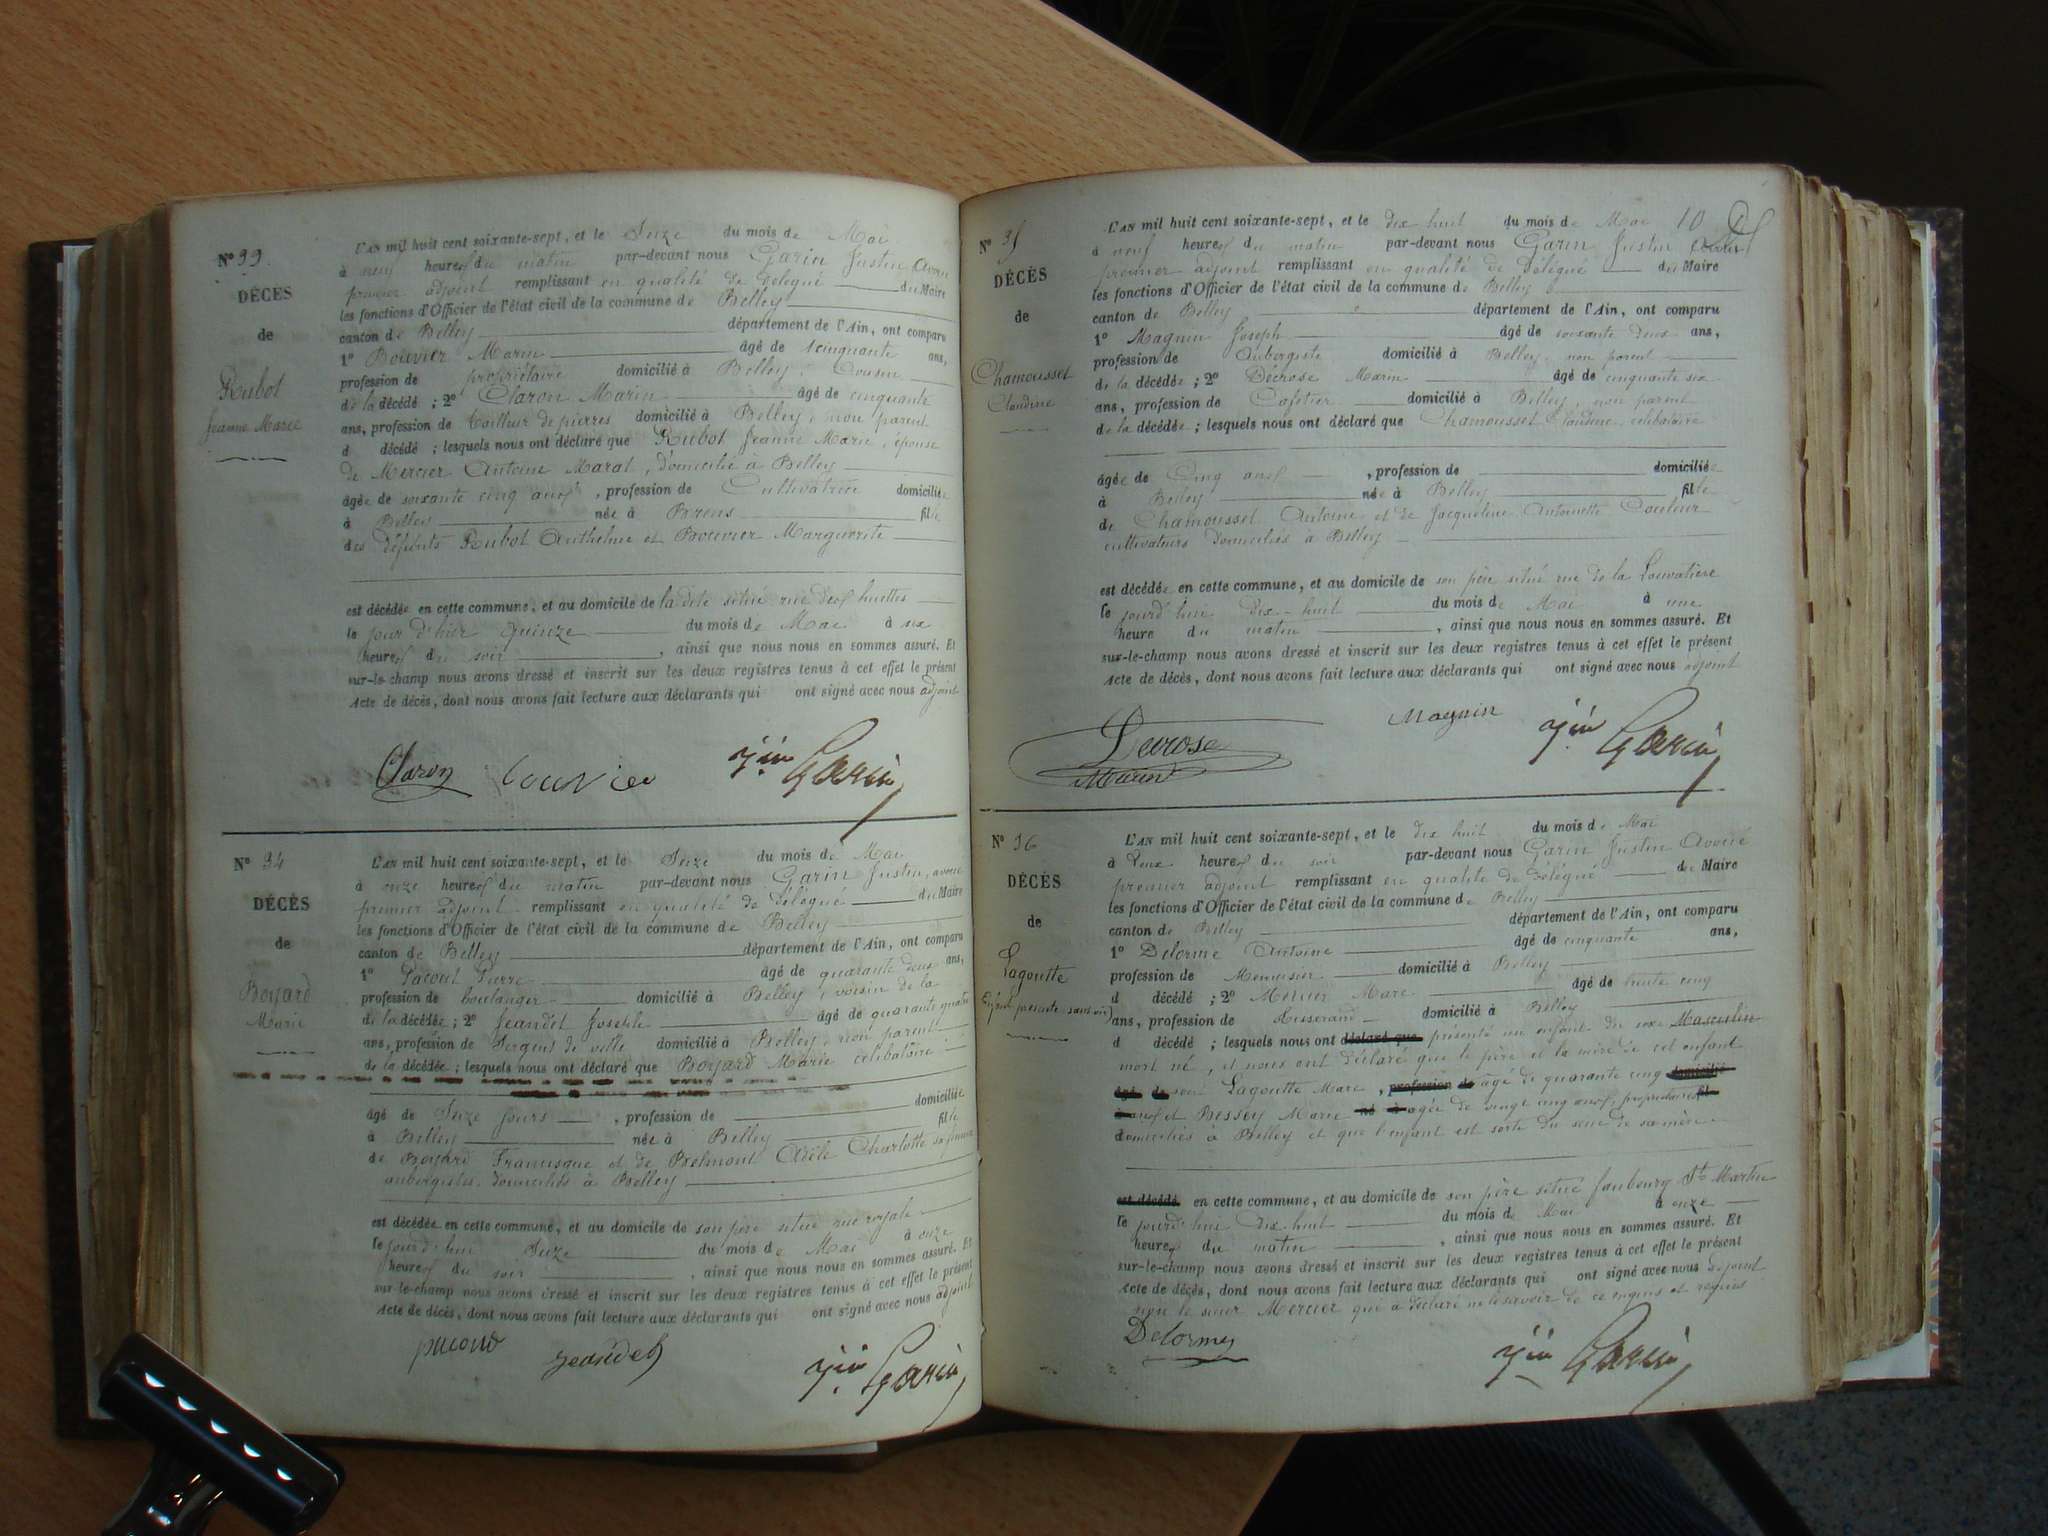 N° 33.
DÉCÈS
de
Rubot
Jeanne Marie
L'AN mil huit cent soixante-sept, et le Seize du mois de Mai
à neuf heures du matin par-devant nous Garin Justin, avoué
premier adjoint remplissant en qualité de délégué du Maire
les fonctions d'Officier de l'état civil de la commune de Belley
canton de Belley département de l'Ain, ont comparu
1° Bouvier Marin âgé de cinquante ans,
profession de propriétaire domicilié à Belley, Cousin
de la décédé ; 2° Claron Marin âgé de cinquante
ans, profession de tailleur de pierres domicilié à Belley, non parent
d décédé ; lesquels nous ont déclaré que Rubot Jeanne Marie, épouse
de Mercier Antoine Marat, domicilié à Belley
âgée de soixante cinq ans, profession de Cultivatrice domiciliée
à Belley née à Brens fille
des défunts Rubot Anthelme et Bouvier Marguerite
est décédée en cette commune, et au domicile de la dite situé rue des huttes
le jour d'hier quinze du mois de Mai à six
heures du soir, ainsi que nous nous en sommes assuré. Et
sur-le-champ nous avons dressé et inscrit sur les deux registres tenus à cet effet le présent
Acte de décès, dont nous avons fait lecture aux déclarants qui ont signé avec nous adjoint
Claron Bouvier Jin Garin
N° 34
DÉCÈS
de
Boyard
Marie
L'AN mil huit cent soixante-sept, et le Seize du mois de Mai
à onze heures du matin par-devant nous Garin Justin, avoué
premier adjoint remplissant en qualité de délégué du Maire
les fonctions d'Officier de l'état civil de la commune de Belley
canton de Belley département de l'Ain, ont comparu
1° Pacout Pierre âgé de quarante deux ans,
profession de boulanger domicilié à Belley, voisin de la
de la décédée ; 2° Jeandet Joseph âgé de quarante quatre
ans, profession de Sergent de ville domicilié à Belley, non parent
de la décédée ; lesquels nous ont déclaré que Boyard Marie célibataire
âgé de Seize jours, profession de domiciliée
à Belley née à Belley fille
de Boyard Francisque et de Belmont Adèle Charlotte sa femme
aubergistes domiciliés à Belley
est décédée en cette commune, et au domicile de son père situé rue royale
le jourd'hui Seize du mois de Mai à onze
heures du soir, ainsi que nous nous en sommes assuré. Et
sur-le-champ nous avons dressé et inscrit sur les deux registres tenus à cet effet le présent
Acte de décès, dont nous avons fait lecture aux déclarants qui ont signé avec nous adjoint
Jeandet Jin Garin
N° 35
DÉCÈS
de
Chamousset
Claudine
10
L'AN mil huit cent soixante-sept, et le dix huit du mois de Mai
à neuf heures du matin par-devant nous Garin Justin
premier adjoint remplissant en qualité de délégué du Maire
les fonctions d'Officier de l'état civil de la commune de Belley
canton de Belley département de l'Ain, ont comparu
1° Magnin Joseph âgé de soixante deux ans,
profession de Aubergiste domicilié à Belley, non parent
de la décédée ; 2° Décrose Marin âgé de cinquante six
ans, profession de Cafetier domicilié à Belley, non parent
de la décédée ; lesquels nous ont déclaré que Chamousset Claudine, célibataire
âgée de Cinq ans, profession de domiciliée
à Belley née à Belley fille
de Chamousset Antoine et de Jacqueline Antoinette Couleur
cultivateurs domiciliés à Belley
est décédée en cette commune, et au domicile de son père situé rue de la Louvatière
le jourd'hui dix-huit du mois de Mai à une
heure du matin, ainsi que nous nous en sommes assuré. Et
sur-le-champ nous avons dressé et inscrit sur les deux registres tenus à cet effet le présent
Acte de décès, dont nous avons fait lecture aux déclarants qui ont signé avec nous adjoint
Decrose Marin Magnin Jin Garin
N° 36
DÉCÈS
de
Lagoutte
Enfant présenté sans vie
L'AN mil huit cent soixante-sept, et le dix huit du mois de Mai
à deux heures du soir par-devant nous Garin Justin Avoué
premier adjoint remplissant en qualité de délégué du Maire
les fonctions d'Officier de l'état civil de la commune de Belley
canton de Belley département de l'Ain, ont comparu
1° Delorme Antoine âgé de cinquante ans,
profession de Menuisier domicilié à Belley
d décédé ; 2° Mercier Marc âgé de trente cinq
ans, profession de Tisserand domicilié à Belley
d décédé ; lesquels nous ont déclaré que présenté un enfant du sexe Masculin
mort né, et nous ont déclaré que le père et la mère de cet enfant
âgé de sont Lagoutte Marc, profession de âgé de quarante cinq domicilié
à ans et Bessey Marie né à âgée de vingt cinq ans, propriétaires fil
domiciliés à Belley et que l'enfant est sorti du sein de sa mère
est décédé en cette commune, et au domicile de son père situé faubourg St Martin
le jourd'hui dix-huit du mois de Mai à onze
heures du matin, ainsi que nous nous en sommes assuré. Et
sur-le-champ nous avons dressé et inscrit sur les deux registres tenus à cet effet le présent
Acte de décès, dont nous avons fait lecture aux déclarants qui ont signé avec nous adjoint
non le sieur Mercier qui a déclaré ne le savoir de ce enquis et requis
Delorme Jin Garin